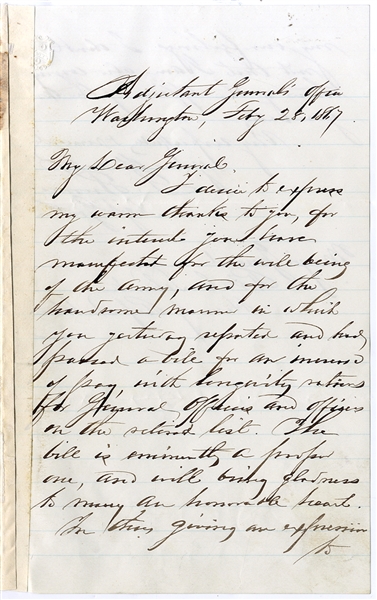 Adjutant General's Office
Washington, Feby 28, 1867.
My Dear General.
I desire to express
my warm thanks to you, for
the interest you have
manifested for the well being
of the Army, and for the
handsome manner in which
you yesterday reported and had
passed a bill for an increase
of pay with longevity rations
for General Officers and officers
on the retired list. The
bill is eminently a proper
one, and will bring gladness
to many an honorable heart.
In thus giving an expression
to